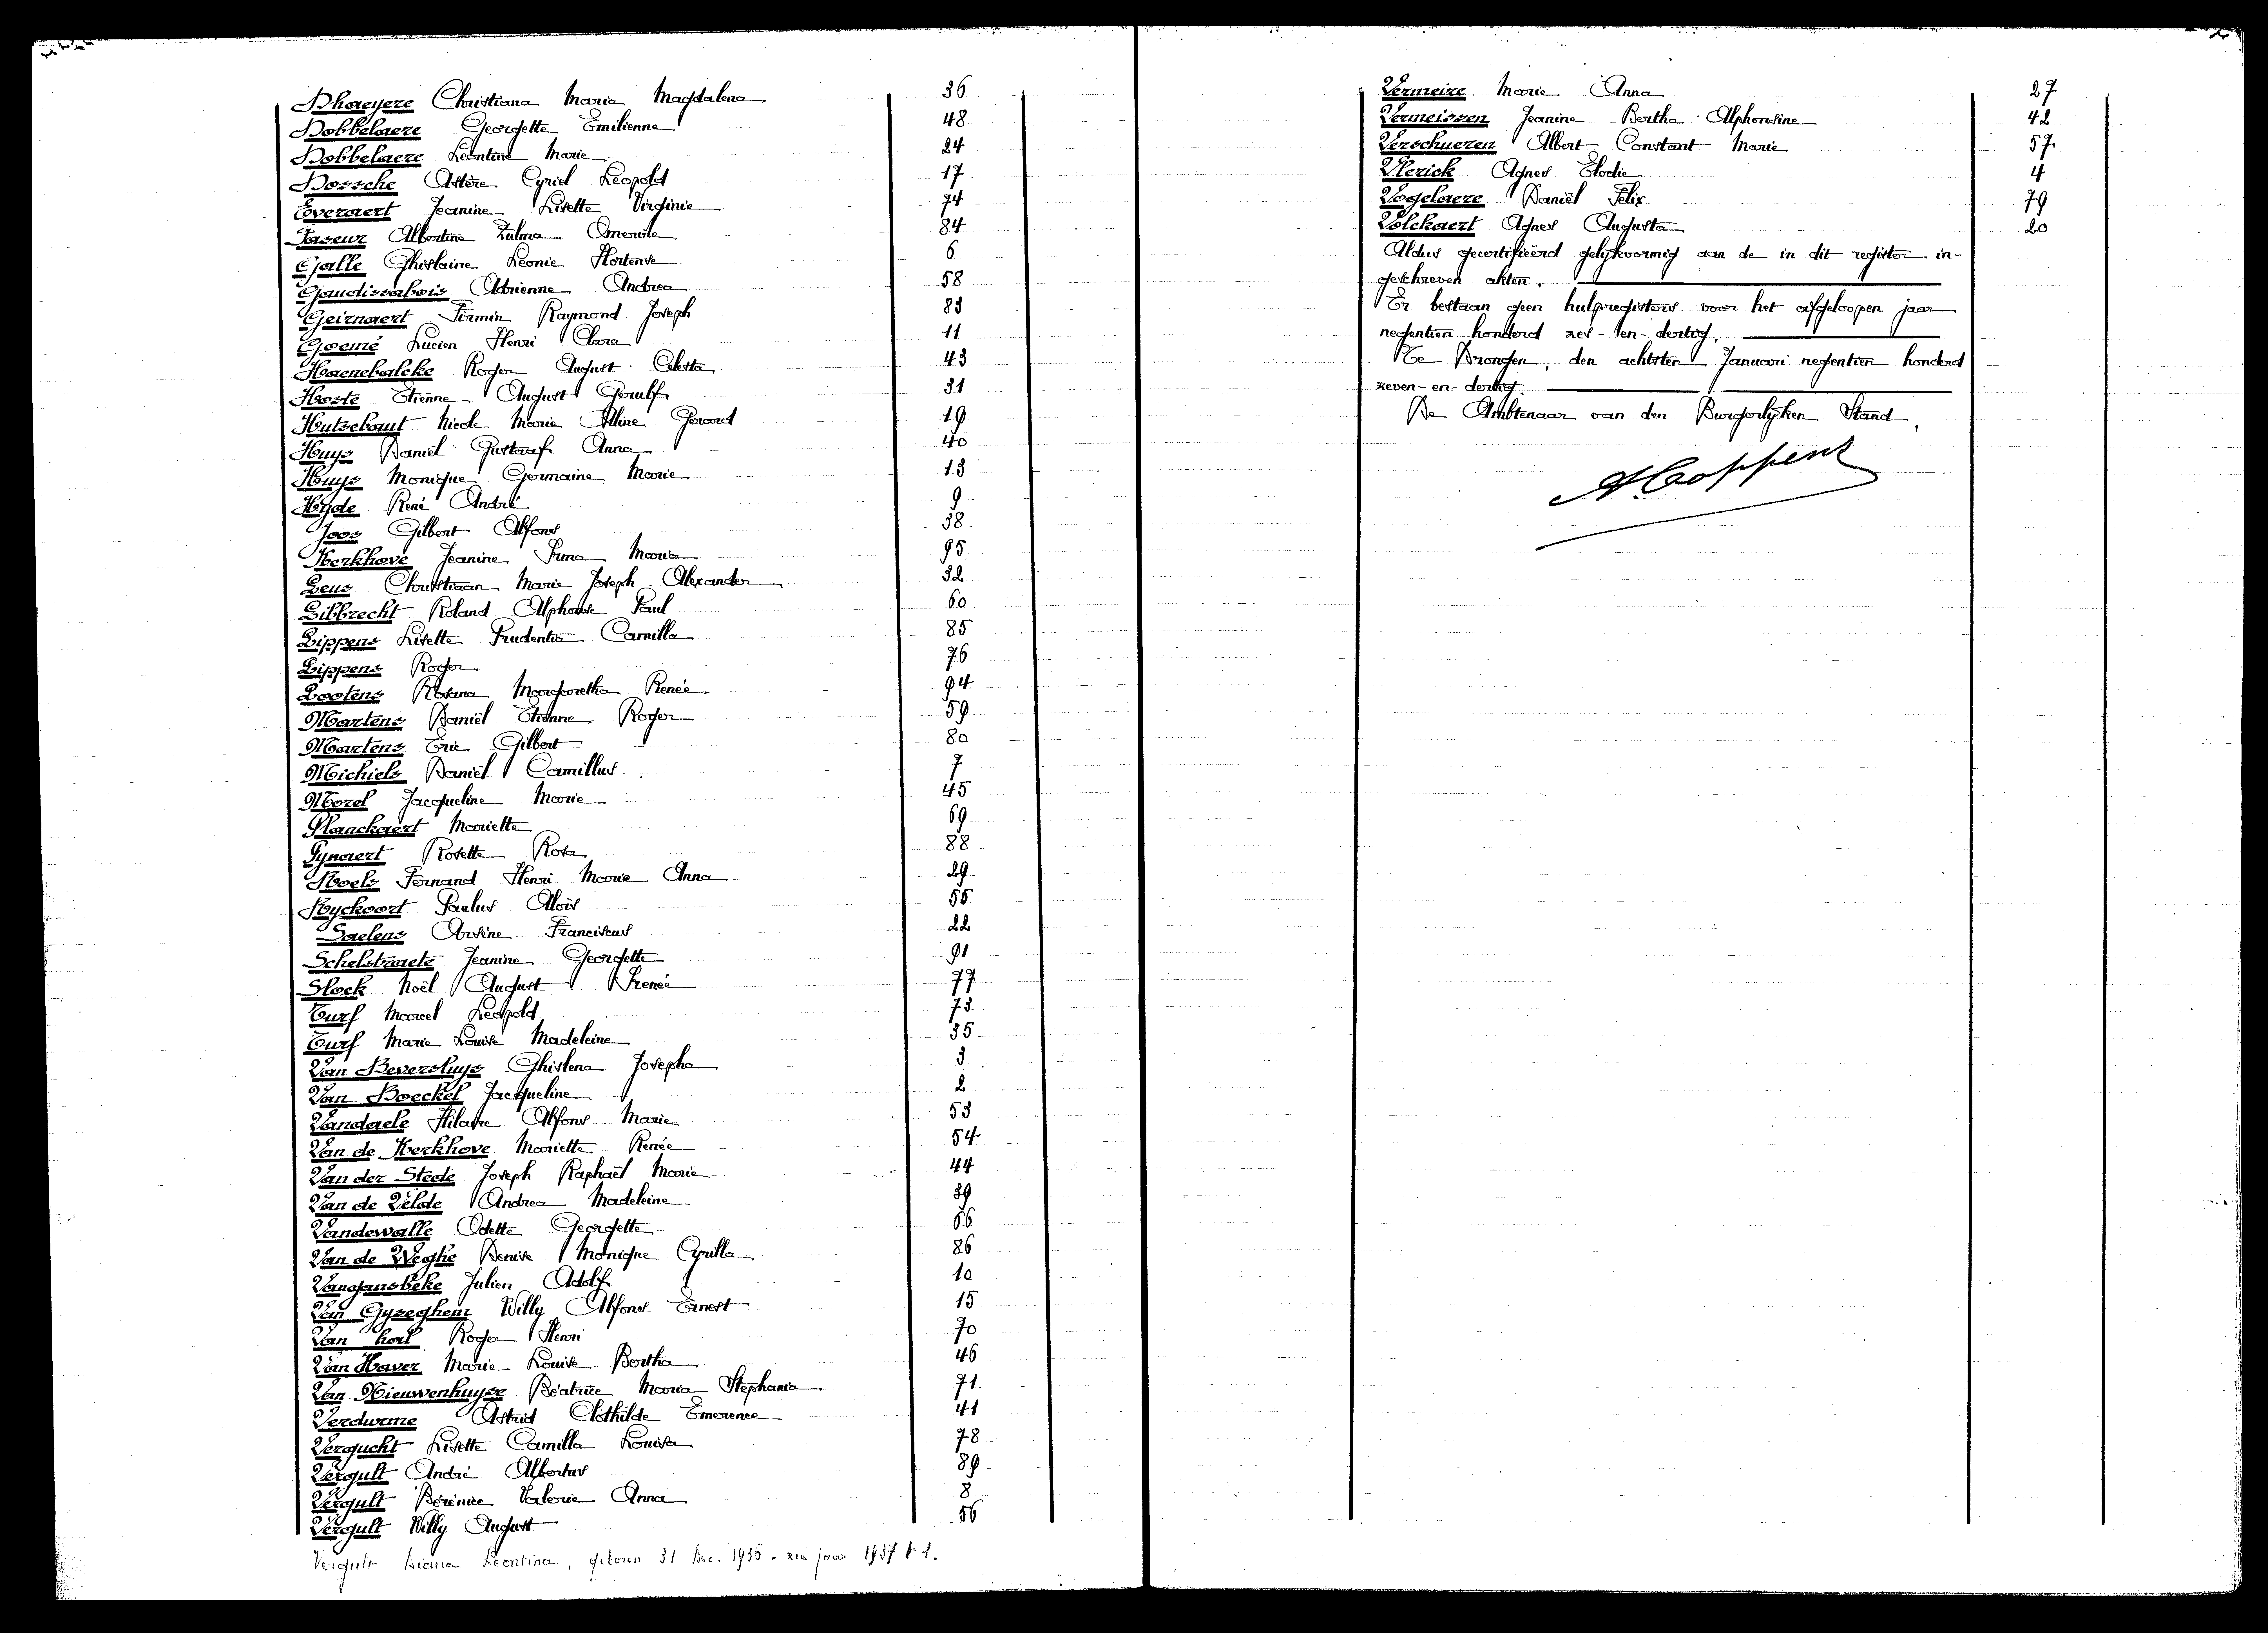 Dhaeyere Christiana Maria Magdalena 36
Dobbelaere Georgette Emilienne 48
Dobbelaere Leontine Marie 24
Dossche Astère Cyriel Leopold 17
Everaert Jeanine Lisette Virginie 74
Faseur Albertine Zulma 84
Galle Ghislaine Leonie Hortense 6
Gaudissabois Adrienne Andrea 58
Geirnaert Firmin Raymond Joseph 83
Goemé Lucien Henri Clara 11
Haenebalcke Roger August Celesta 43
Hoste Etienne August Geulf 31
Hutsebaut Nicole Marie Alline Gerard 19
Huys Daniël Gustaaf Anna 40
Huys Monique Germaine Marie 13
Hyde René André 9
Joos Gilbert Alfons 38
Kerkhove Jeanine Irma Maria 95
Leus Christiaan Marie Joseph Alexander 32
Libbrecht Roland Alphonse Paul 60
Lippens Lisette Prudentia Camilla 85
Lippens Roger 76
Lootens Rosana Margaretha Renée 94
Martens Daniël Etienne Roger 59
Martens Eric Gilbert 80
Michiels Daniël Camillus 7
Morel Jacqueline Marie 45
Planckaert Mariette 69
Pynaert Rosette Rosa 88
Roels Fernand Henri Marie Anna 29
Ryckoort Paulus Aloïs 55
Saelens Arsène Franciscus 22
Schelstraete Jeanine Georgette 91
Slock Noël August Irené 77
Turf Marcel Leopold 73
Turf Marie Louise Madeleine 35
Van Beversluys Ghislena Josepha 3
Van Boeckel Jacqueline 2
Vandaele Hilaire Alfons Marie 53
Van de Kerkhove Mariette Renée 54
Van der Stede Joseph Raphaël Marie 44
Van de Velde Andrea Madeleine 39
Vandewalle Odette Georgette 66
Van de Weghe Denise Monique Cyrilla 86
Vangansbeke Julien Adolf 10
Van Gyzeghem Willy Alfons Ernest 15
Van hoel Roger Henri 70
Van Haver Marie Louise Bertha 46
Van Nieuwenhuyse Béatrice Maria Stephania 71
Verdurme Astrid Clothilde Emerence 41
Vergucht Lisette Camilla Louisa 78
Vergult André Albertus 89
Vergult Bérénice Valerie Anna 8
Vergult Willy August 56
Vergult Diana Leontina, geboren 31 Dec. 1936 - zie jaar 1937 Nr 1.
Vermeire Marie Anna 27
Vermeissen Jeanine Bertha Alphonsine 42
Verschueren Albert Constant Marie 57
Vlerick Agnes Elodie 4
Vogelaere Daniël Felix 79
Volckaert Agnes Augusta 20
Aldus gecertifieërd gelijkvormig aan de in dit register in-
geschreven akten.
Er bestaan geen hulpregisters voor het afgeloopen jaar
negentien honderd zes-en-dertig.
Te Drongen, den achtsten Januari negentien honderd
zeven-en-dertig.
De Ambtenaar van den Burgerlijken Stand,
A. Coppens